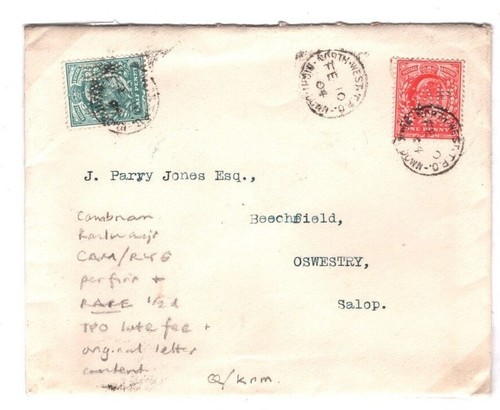 HALFPENNY
NORTH-WEST.T.P.O.
FE 10
04
ONE PENNY
NORTH-WEST.T.P.O.
J. Parry Jones Esq.,
Beechfield,
OSWESTRY,
Salop.
Cambrian
Railways
CAM/RYS
perfin +
RARE 1/2d
TPO late fee +
original letter
content